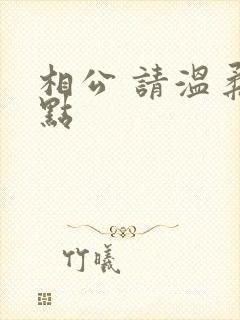 相公 請溫柔
點
竹曦